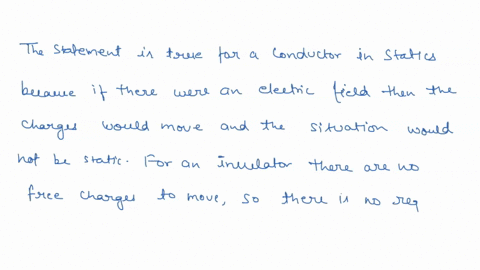 The statement is true for a conductor in statics
because if there were an electric field then the
charges would move and the situation would
not be static. For an insulator there are no
free charges to move, so there is no req